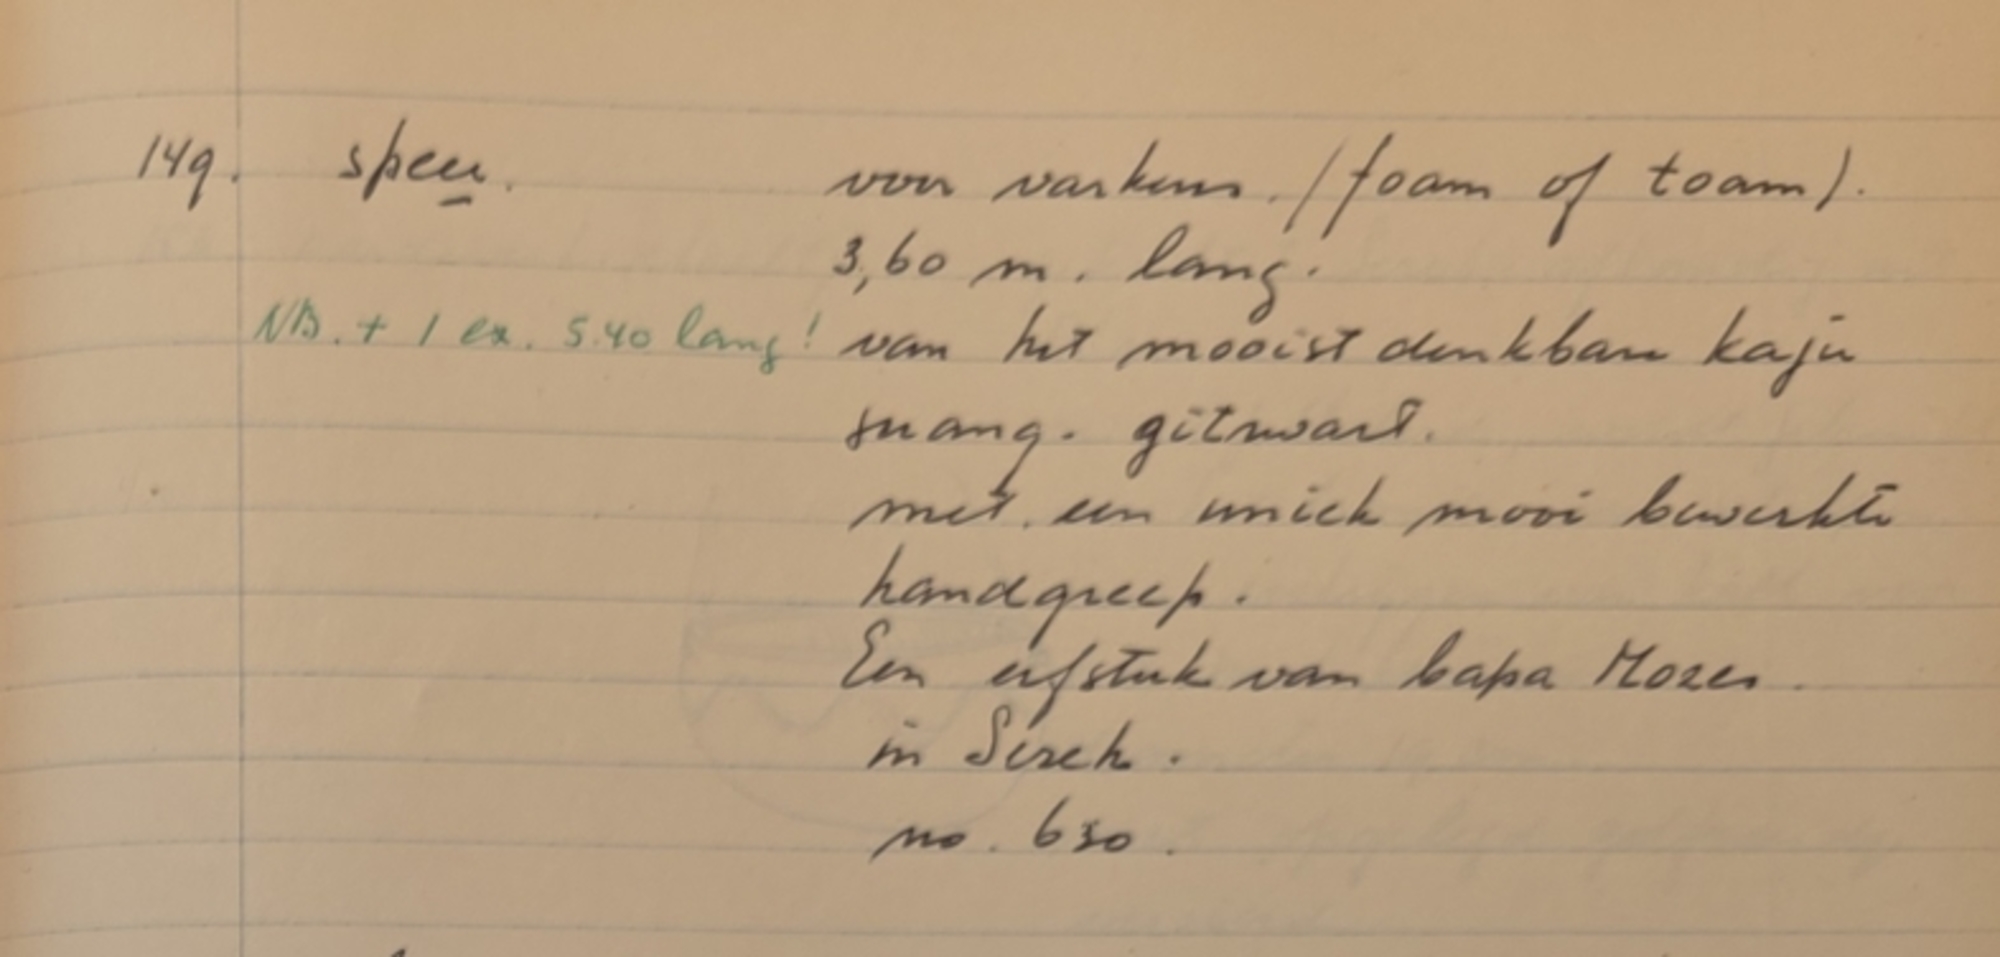 149. speer. voor varkens. (foam of toam).
3,60 m. lang.
NB. + 1 ex. 5.40 lang! van het mooist denkbare kaju
suang. gitzwart.
met een uniek mooi bewerkte
handgreep.
Een erfstuk van bapa Mozes.
in Sereh.
no. 630.